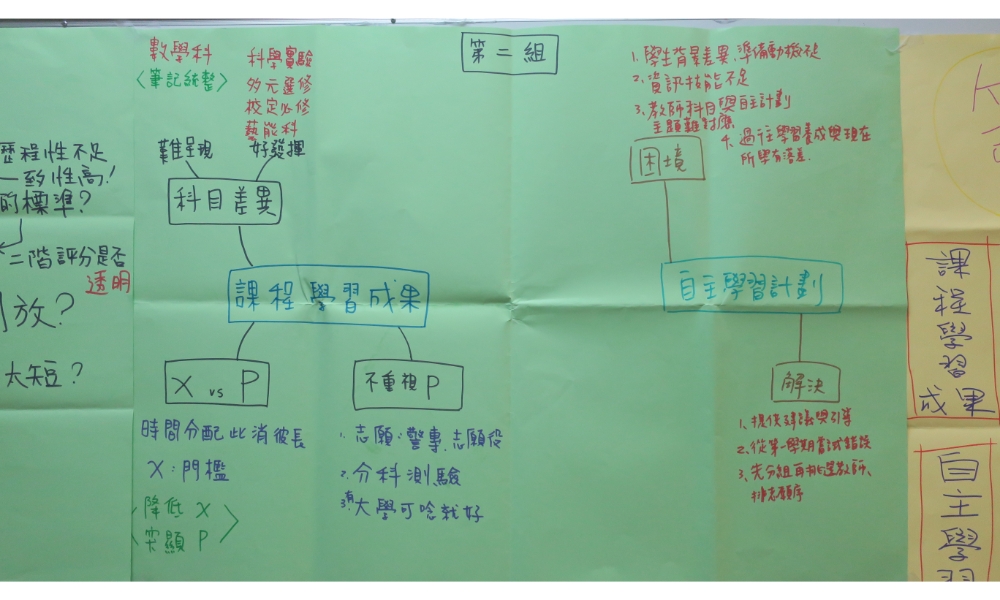 第二組
歷程性不足
一致性高!
的標準?
二階評分是否
透明
放?
大短?
數學科
〈筆記統整〉
科學實驗
多元選修
校定必修
藝能科
難呈現
好發揮
科目差異
課程學習成果
X vs P
時間分配此消彼長
X:門檻
〈降低 X
突顯 P〉
不重視 P
1. 志願:警專、志願役
2. 分科測驗
3. 有大學可唸就好
1. 學生背景差異,準備動機不足
2. 資訊技能不足
3. 教師科目與自主計劃
主題難對應
4. 過往學習養成與現在
所學有落差.
困境
自主學習計劃
解決
1. 提供建議與引導
2. 從第一學期嘗試錯誤
3. 先分組再挑選教師、
排志願序
課程學習成果
自主學習